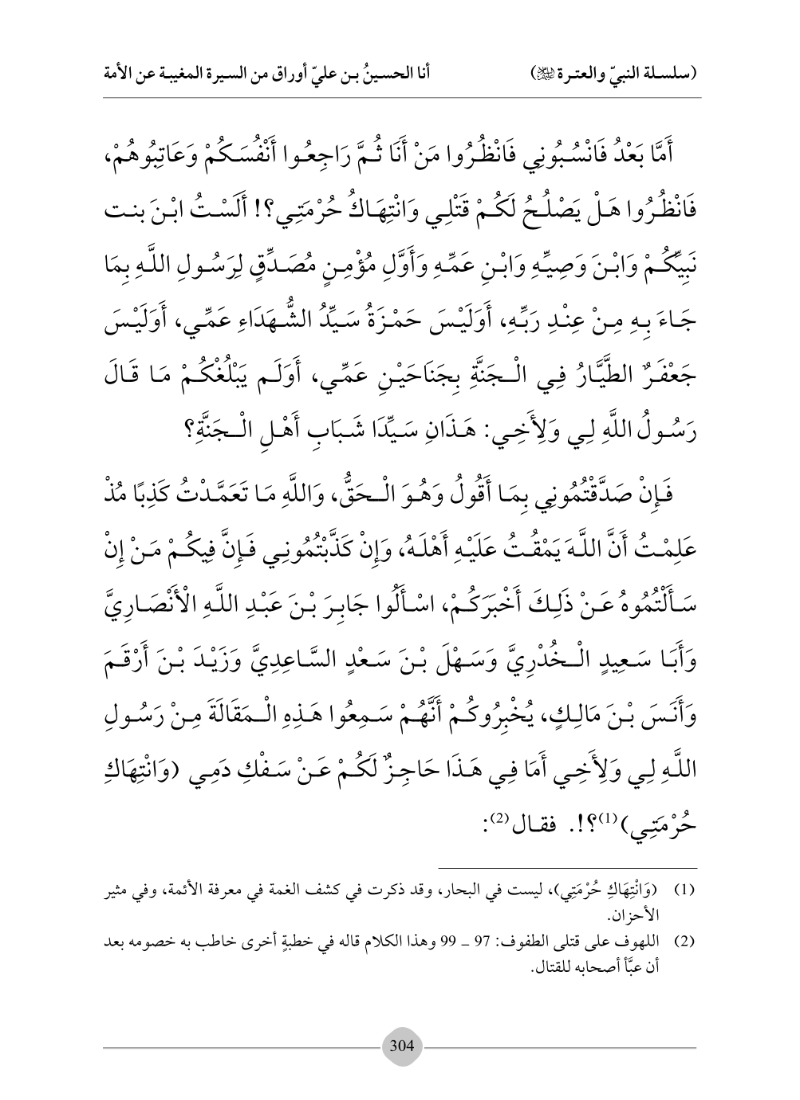 (سلسلة النبيّ والعترة ﷺ) أنا الحسينُ بن عليّ أوراق من السيرة المغيبة عن الأمة
أَمَّا بَعْدُ فَانْسُبُونِي فَانْظُرُوا مَنْ أَنَا ثُمَّ رَاجِعُوا أَنْفُسَكُمْ وَعَاتِبُوهُمْ،
فَانْظُرُوا هَلْ يَصْلُحُ لَكُمْ قَتْلِي وَانْتِهَاكُ حُرْمَتِي؟! أَلَسْتُ ابْنَ بنت
نَبِيِّكُمْ وَابْنَ وَصِيِّهِ وَابْنِ عَمِّهِ وَأَوَّلِ مُؤْمِنٍ مُصَدِّقٍ لِرَسُولِ اللَّهِ بِمَا
جَاءَ بِهِ مِنْ عِنْدِ رَبِّهِ، أَوَلَيْسَ حَمْزَةُ سَيِّدُ الشُّهَدَاءِ عَمِّي، أَوَلَيْسَ
جَعْفَرٌ الطَّيَّارُ فِي الْجَنَّةِ بِجَنَاحَيْنِ عَمِّي، أَوَلَم يَبْلُغْكُمْ مَا قَالَ
رَسُولُ اللَّهِ لِي وَلِأَخِي: هَذَانِ سَيِّدَا شَبَابِ أَهْلِ الْجَنَّةِ؟
فَإِنْ صَدَّقْتُمُونِي بِمَا أَقُولُ وَهُوَ الْحَقُّ، وَاللَّهِ مَا تَعَمَّدْتُ كَذِبًا مُذْ
عَلِمْتُ أَنَّ اللَّهَ يَمْقُتُ عَلَيْهِ أَهْلَهُ، وَإِنْ كَذَّبْتُمُونِي فَإِنَّ فِيكُمْ مَنْ إِنْ
سَأَلْتُمُوهُ عَنْ ذَلِكَ أَخْبَرَكُمْ، اسْأَلُوا جَابِرَ بْنَ عَبْدِ اللَّهِ الْأَنْصَارِيَّ
وَأَبَا سَعِيدٍ الْخُدْرِيَّ وَسَهْلَ بْنَ سَعْدٍ السَّاعِدِيَّ وَزَيْدَ بْنَ أَرْقَمَ
وَأَنَسَ بْنَ مَالِكٍ، يُخْبِرُوكُمْ أَنَّهُمْ سَمِعُوا هَذِهِ الْمَقَالَةَ مِنْ رَسُولِ
اللَّهِ لِي وَلِأَخِي أَمَا فِي هَذَا حَاجِزٌ لَكُمْ عَنْ سَفْكِ دَمِي (وَانْتِهَاكِ
حُرْمَتِي)(1)؟!. فقال(2):
(1) (وَانْتِهَاكِ حُرْمَتِي)، ليست في البحار، وقد ذكرت في كشف الغمة في معرفة الأئمة، وفي مثير
الأحزان.
(2) اللهوف على قتلى الطفوف: 97 ـ 99 وهذا الكلام قاله في خطبةٍ أخرى خاطب به خصومه بعد
أن عبَّأ أصحابه للقتال.
304